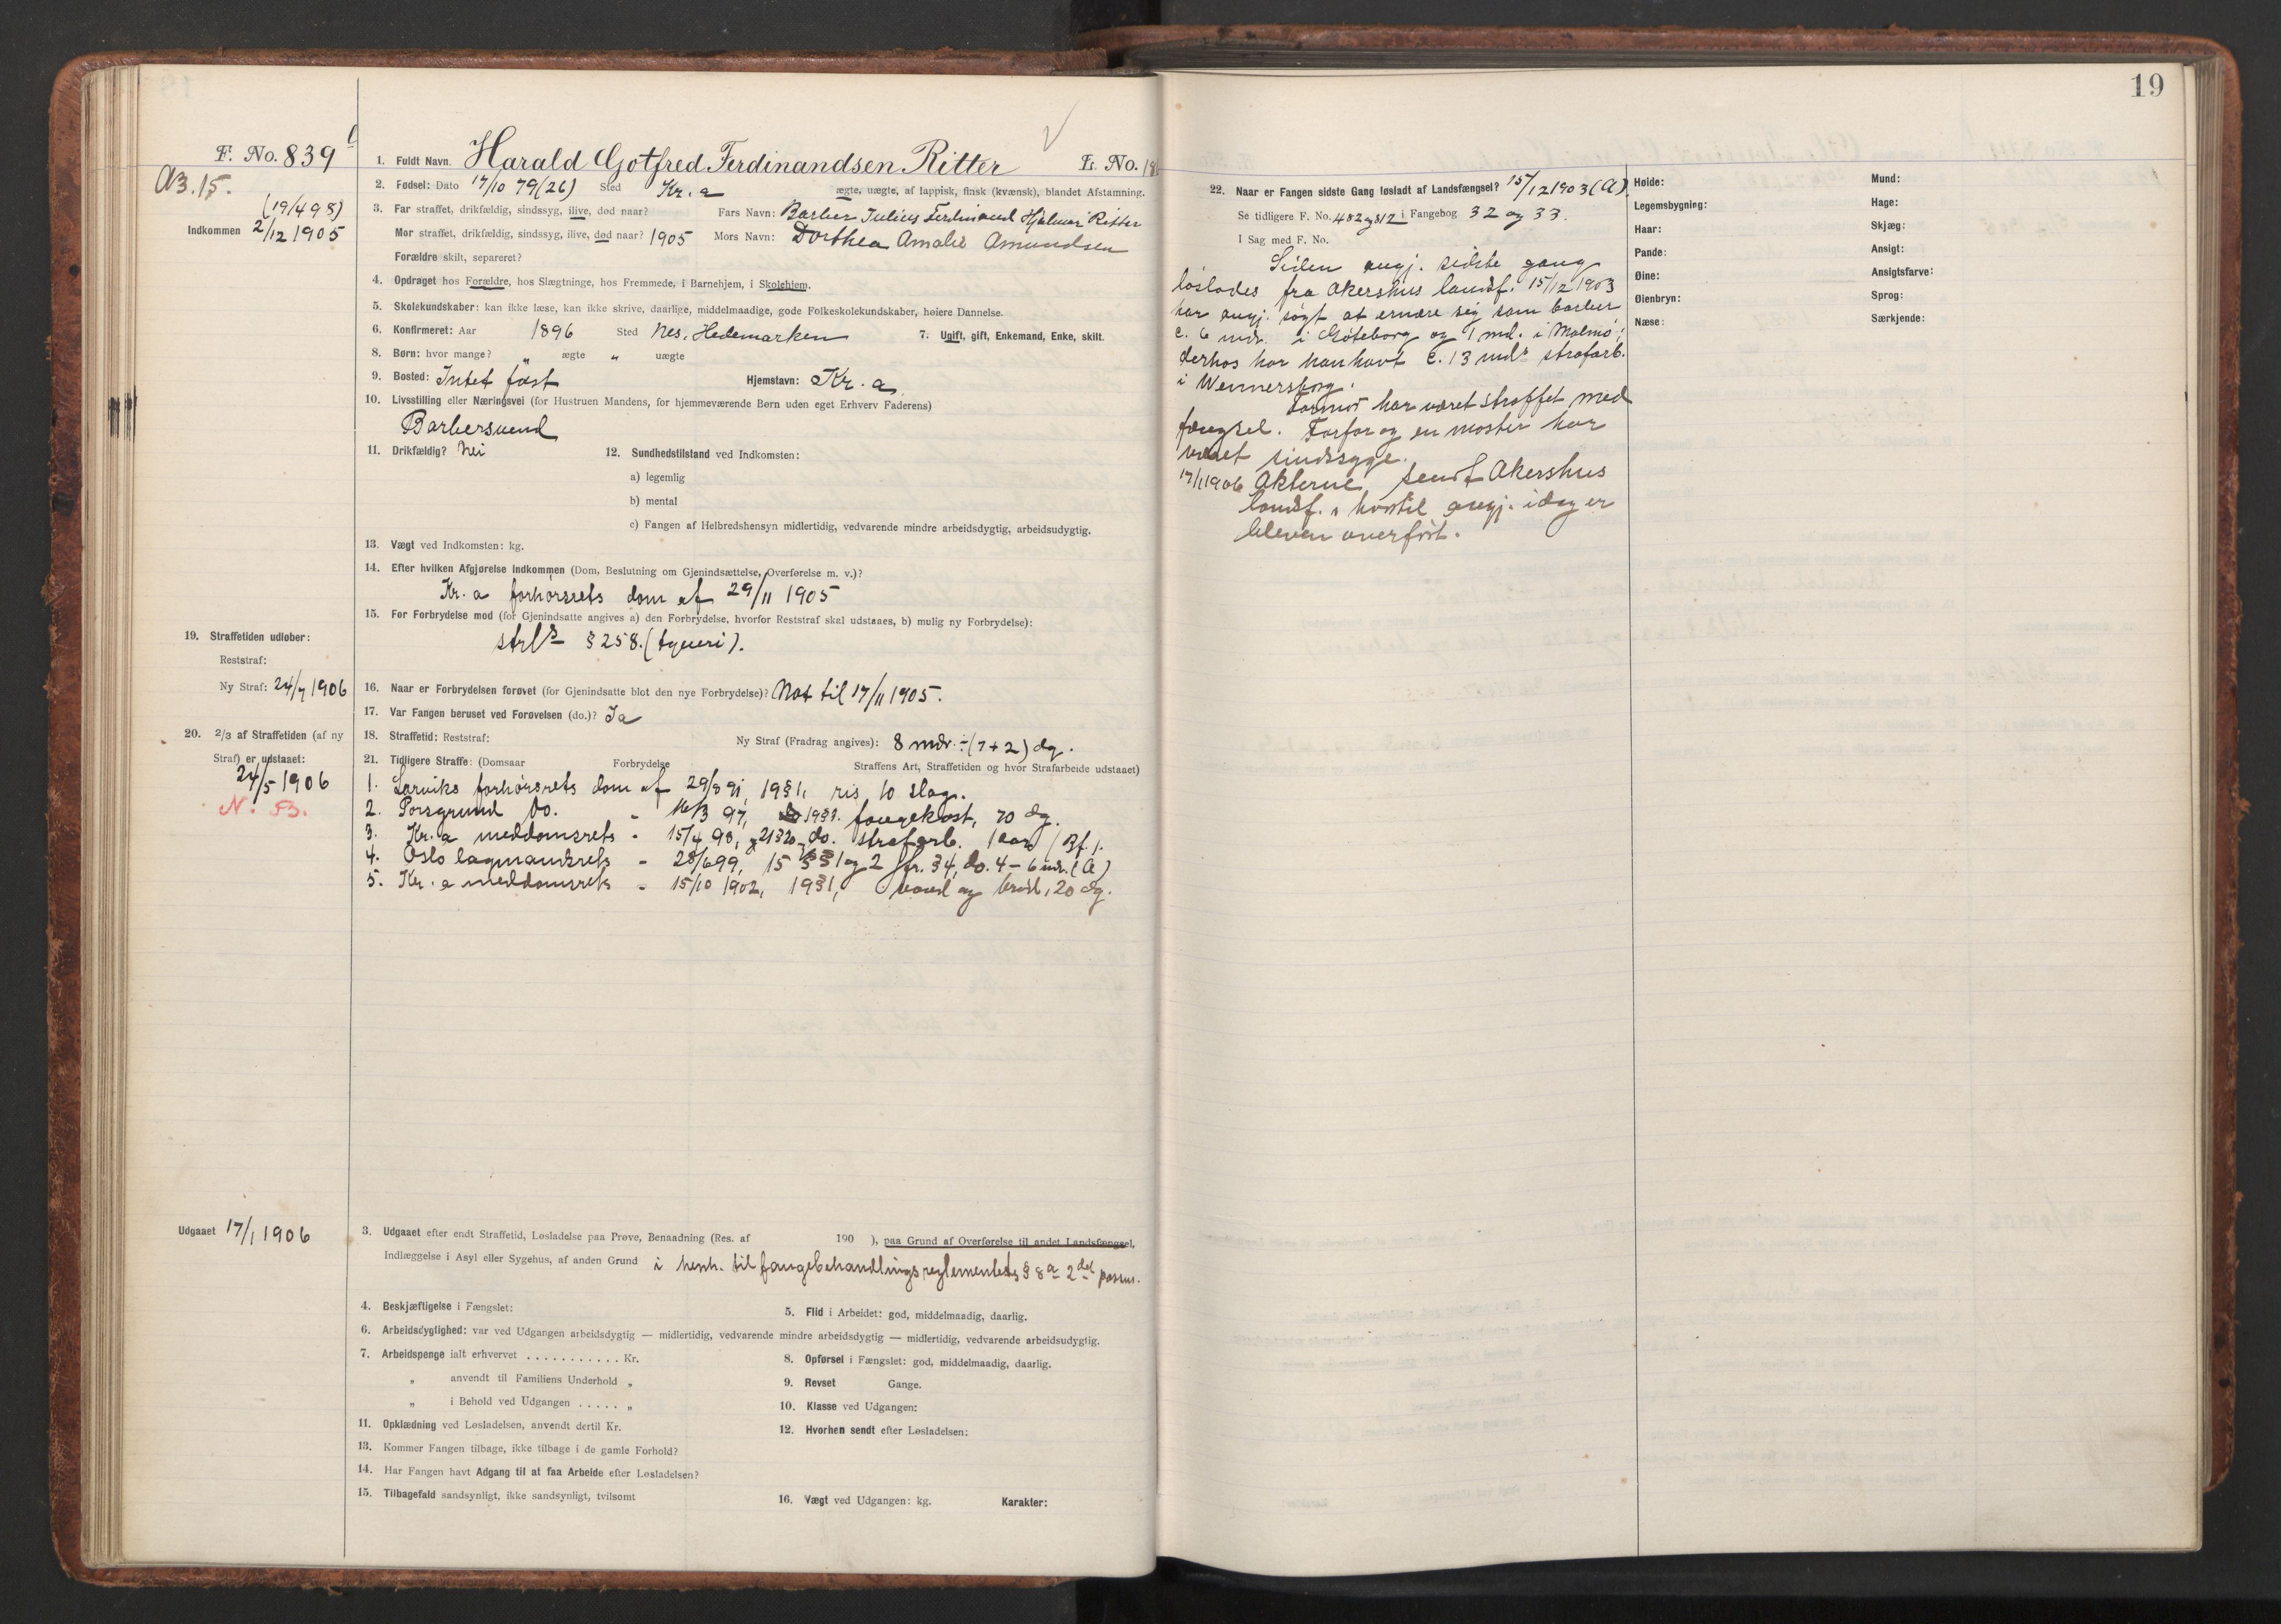 F. No. 839
1. Fuldt Navn. Harald Gotfred Ferdinandsen Ritter L. No.
A3.15.
(19/4 98)
Indkommen 2/12 1905
2. Fødsel: Dato 17/10 79 (26) Sted Kr.a ægte, uægte, af lappisk, finsk (kvænsk), blandet Afstamning.
3. Far straffet, drikfældig, sindssyg, ilive, død naar? Fars Navn: Barber Julius Ferdinand Hjalmar Ritter
Mor straffet, drikfældig, sindssyg, ilive, død naar? 1905 Mors Navn: Dorthea Amalie Amundsen
Forældre skilt, separeret?
4. Opdraget hos Forældre, hos Slægtninge, hos Fremmede, i Barnehjem, i Skolehjem.
5. Skolekundskaber: kan ikke læse, kan ikke skrive, daarlige, middelmaadige, gode Folkeskolekundskaber, høiere Dannelse.
6. Konfirmeret: Aar 1896 Sted Nes, Hedemarken 7. Ugift, gift, Enkemand, Enke, skilt.
8. Børn: hvor mange? „ ægte „ uægte
9. Bosted: Intet fast Hjemstavn: Kr.a
10. Livsstilling eller Næringsvei (for Hustruen Mandens, for hjemmeværende Børn uden eget Erhverv Faderens)
Barbersvend
11. Drikfældig? Nei 12. Sundhedstilstand ved Indkomsten:
a) legemlig
b) mental
c) Fangen af Helbredshensyn midlertidig, vedvarende mindre arbeidsdygtig, arbeidsudygtig.
13. Vægt ved Indkomsten: kg.
14. Efter hvilken Afgjørelse indkommen (Dom, Beslutning om Gjenindsættelse, Overførelse m. v.)?
Kr.a forhørsrets dom af 29/11 1905
15. For Forbrydelse mod (for Gjenindsatte angives a) den Forbrydelse, hvorfor Reststraf skal udstaaes, b) mulig ny Forbrydelse):
strls § 258. (tyveri).
19. Straffetiden udløber:
Reststraf:
Ny Straf: 24/7 1906
16. Naar er Forbrydelsen forøvet (for Gjenindsatte blot den nye Forbrydelse)? Nat til 17/11 1905.
17. Var Fangen beruset ved Forøvelsen (do.)? Ja
20. 2/3 af Straffetiden (af ny
Straf) er udstaaet:
24/5 1906
N. 53.
18. Straffetid: Reststraf: Ny Straf (Fradrag angives): 8 mdr. ÷ (7+2) dg.
21. Tidligere Straffe: (Domsaar Forbrydelse Straffens Art, Straffetiden og hvor Strafarbeide udstaaet)
1. Larviks forhørsrets dom af 29/8 91, 19 § 1, ris, 10 slag.
2. Porsgrund do. - 16/3 97, 19 § 1. fangekost, 70 dg.
3. Kr.a meddomsrets - 15/4 98, do. strafarb. 1 aar (Bf.).
4. Oslo lagmandsrets - 28/6 99, 15 § 1 og 2 jfr. § 4, do. 4 - 6 mdr. (A)
5. Kr.a meddomsrets - 15/10 1902, 19 § 1, vand og brød, 20 dg.
Udgaaet 17/1 1906
3. Udgaaet efter endt Straffetid, Løsladelse paa Prøve, Benaadning (Res. af 190 ), paa Grund af Overførelse til andet Landsfængsel,
Indlæggelse i Asyl eller Sygehus, af anden Grund i henh. til fangebehandlingsreglementets § 8 a 2det passus.
4. Beskjæftigelse i Fængslet: 5. Flid i Arbeidet: god, middelmaadig, daarlig.
6. Arbeidsdygtighed: var ved Udgangen arbeidsdygtig — midlertidig, vedvarende mindre arbeidsdygtig — midlertidig, vedvarende arbeidsudygtig.
7. Arbeidspenge ialt erhvervet . . . . . . . . . . . Kr. 8. Opførsel i Fængslet: god, middelmaadig, daarlig.
„ anvendt til Familiens Underhold „ 9. Revset Gange.
„ i Behold ved Udgangen . . . . . „ 10. Klasse ved Udgangen:
11. Opklædning ved Løsladelsen, anvendt dertil Kr. 12. Hvorhen sendt efter Løsladelsen:
13. Kommer Fangen tilbage, ikke tilbage i de gamle Forhold?
14. Har Fangen havt Adgang til at faa Arbeide efter Løsladelsen?
15. Tilbagefald sandsynligt, ikke sandsynligt, tvilsomt 16. Vægt ved Udgangen: kg. Karakter:
19
22. Naar er Fangen sidste Gang løsladt af Landsfængsel? 15/12 1903 (A)
Se tidligere F. No. 482 og 812 i Fangebog 32 og 33.
I Sag med F. No.
Siden angj. sidste gang
løslodes fra Akershus landsf. 15/12 1903
har angj. søgt at ernære sig som barber
c. 6 mdr. i Göteborg og 1 md. i Malmö;
derhos har han havt c. 13 mdrs strafarb.
i Wennersborg.
Farmor har været straffet med
fængsel. Farfar og en moster har
været sindssyge.
17/1 1906 Akterne sendt Akershus
landsf., hvortil angj. idag er
bleven overført.
Høide: Mund:
Legemsbygning: Hage:
Haar: Skjæg:
Pande: Ansigt:
Øine: Ansigtsfarve:
Øienbryn: Sprog:
Næse: Særkjende: